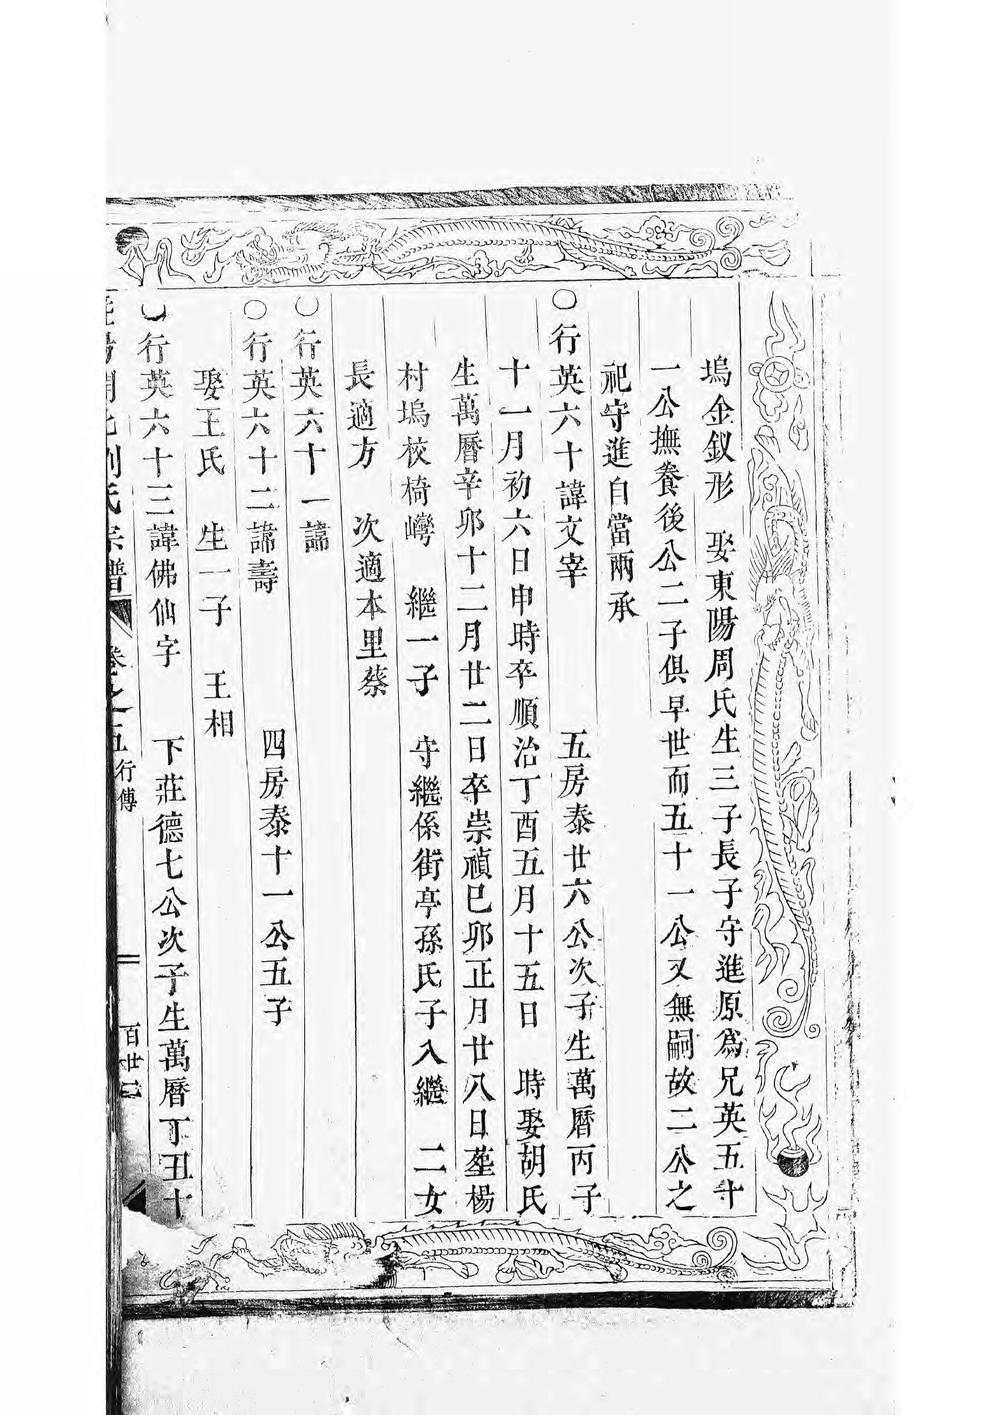 塢金釵形　娶東陽周氏生三子長子守進原爲兄英五十
一公撫養後公二子俱早世而五十一公又無嗣故二公之
祀守進自當兩承
○行英六十諱文宰　五房泰廿六公次子生萬曆丙子
十一月初六日申時卒順治丁酉五月十五日　時娶胡氏
生萬曆辛卯十二月廿二日卒崇禎己卯正月廿八日塟楊
村塢校椅灣　繼一子　守繼係街亭孫氏子入繼　二女
長適方　次適本里蔡
○行英六十一諱
○行英六十二諱壽　四房泰十一公五子
娶王氏　生一子　王相
○行英六十三諱佛仙字　下莊德七公次子生萬曆丁丑十
劉氏宗譜　卷之五　行傳　百廿二